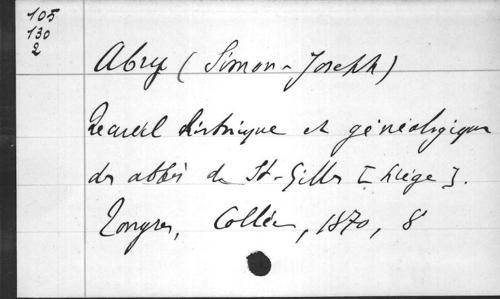 105
130
2
Abry (Simon-Joseph)
Recueil historique et généalogique
des abbés de St-Gilles [Liége].
Tongres, Collée, 1870, 8°